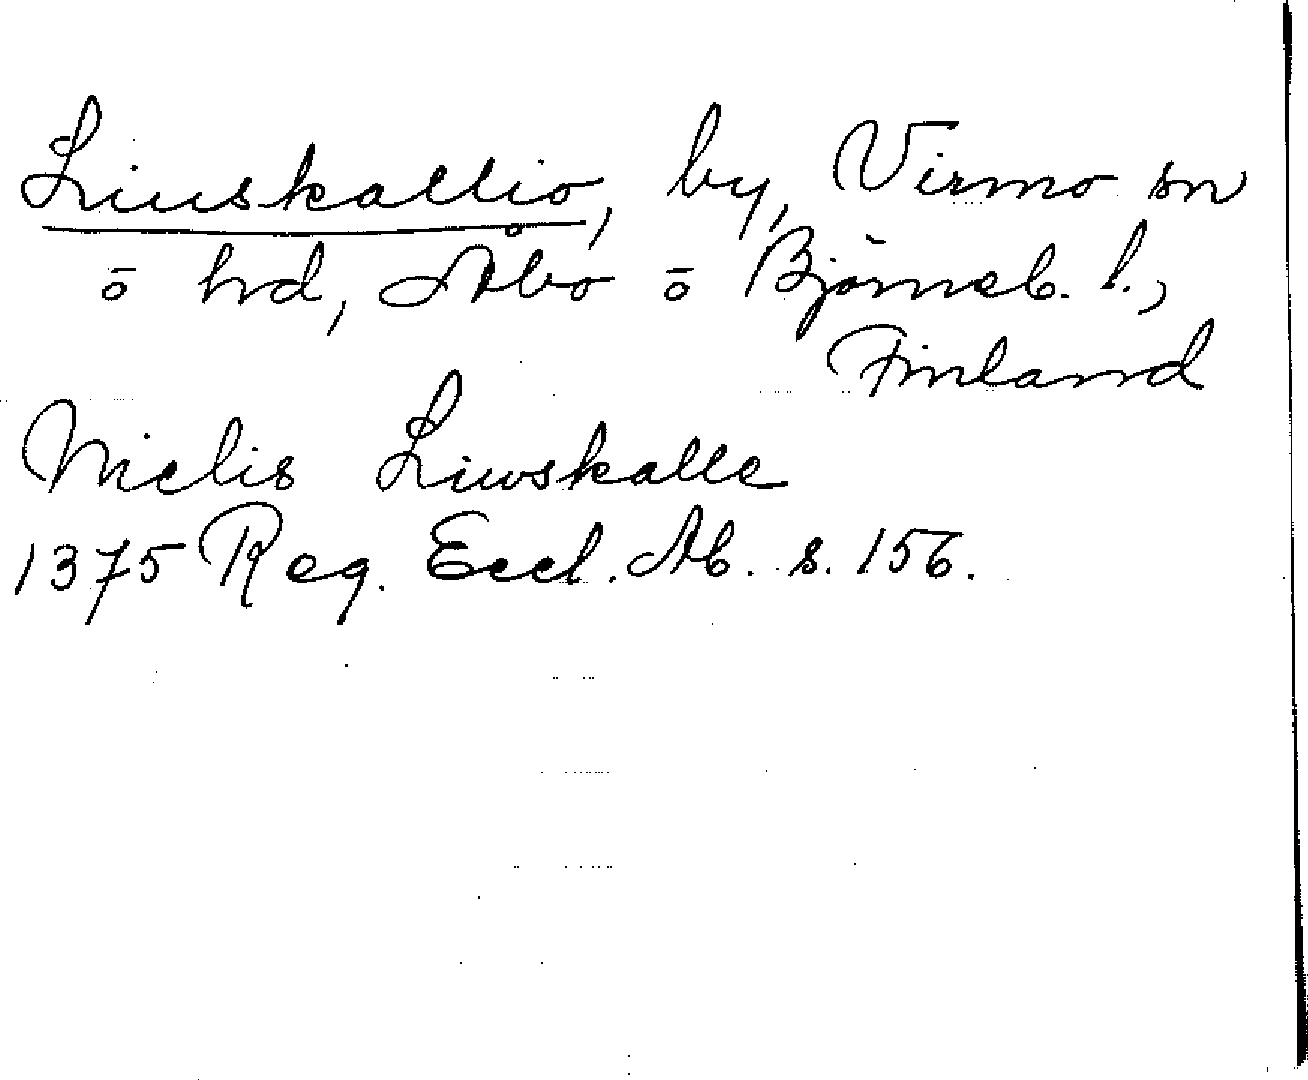 Liuskallio, by, Virmo sn
ō hd, Åbo ō Björneb. l.,
Finland
Nielis Liwskalle
1375 Reg. Eccl. Ab. s. 156.